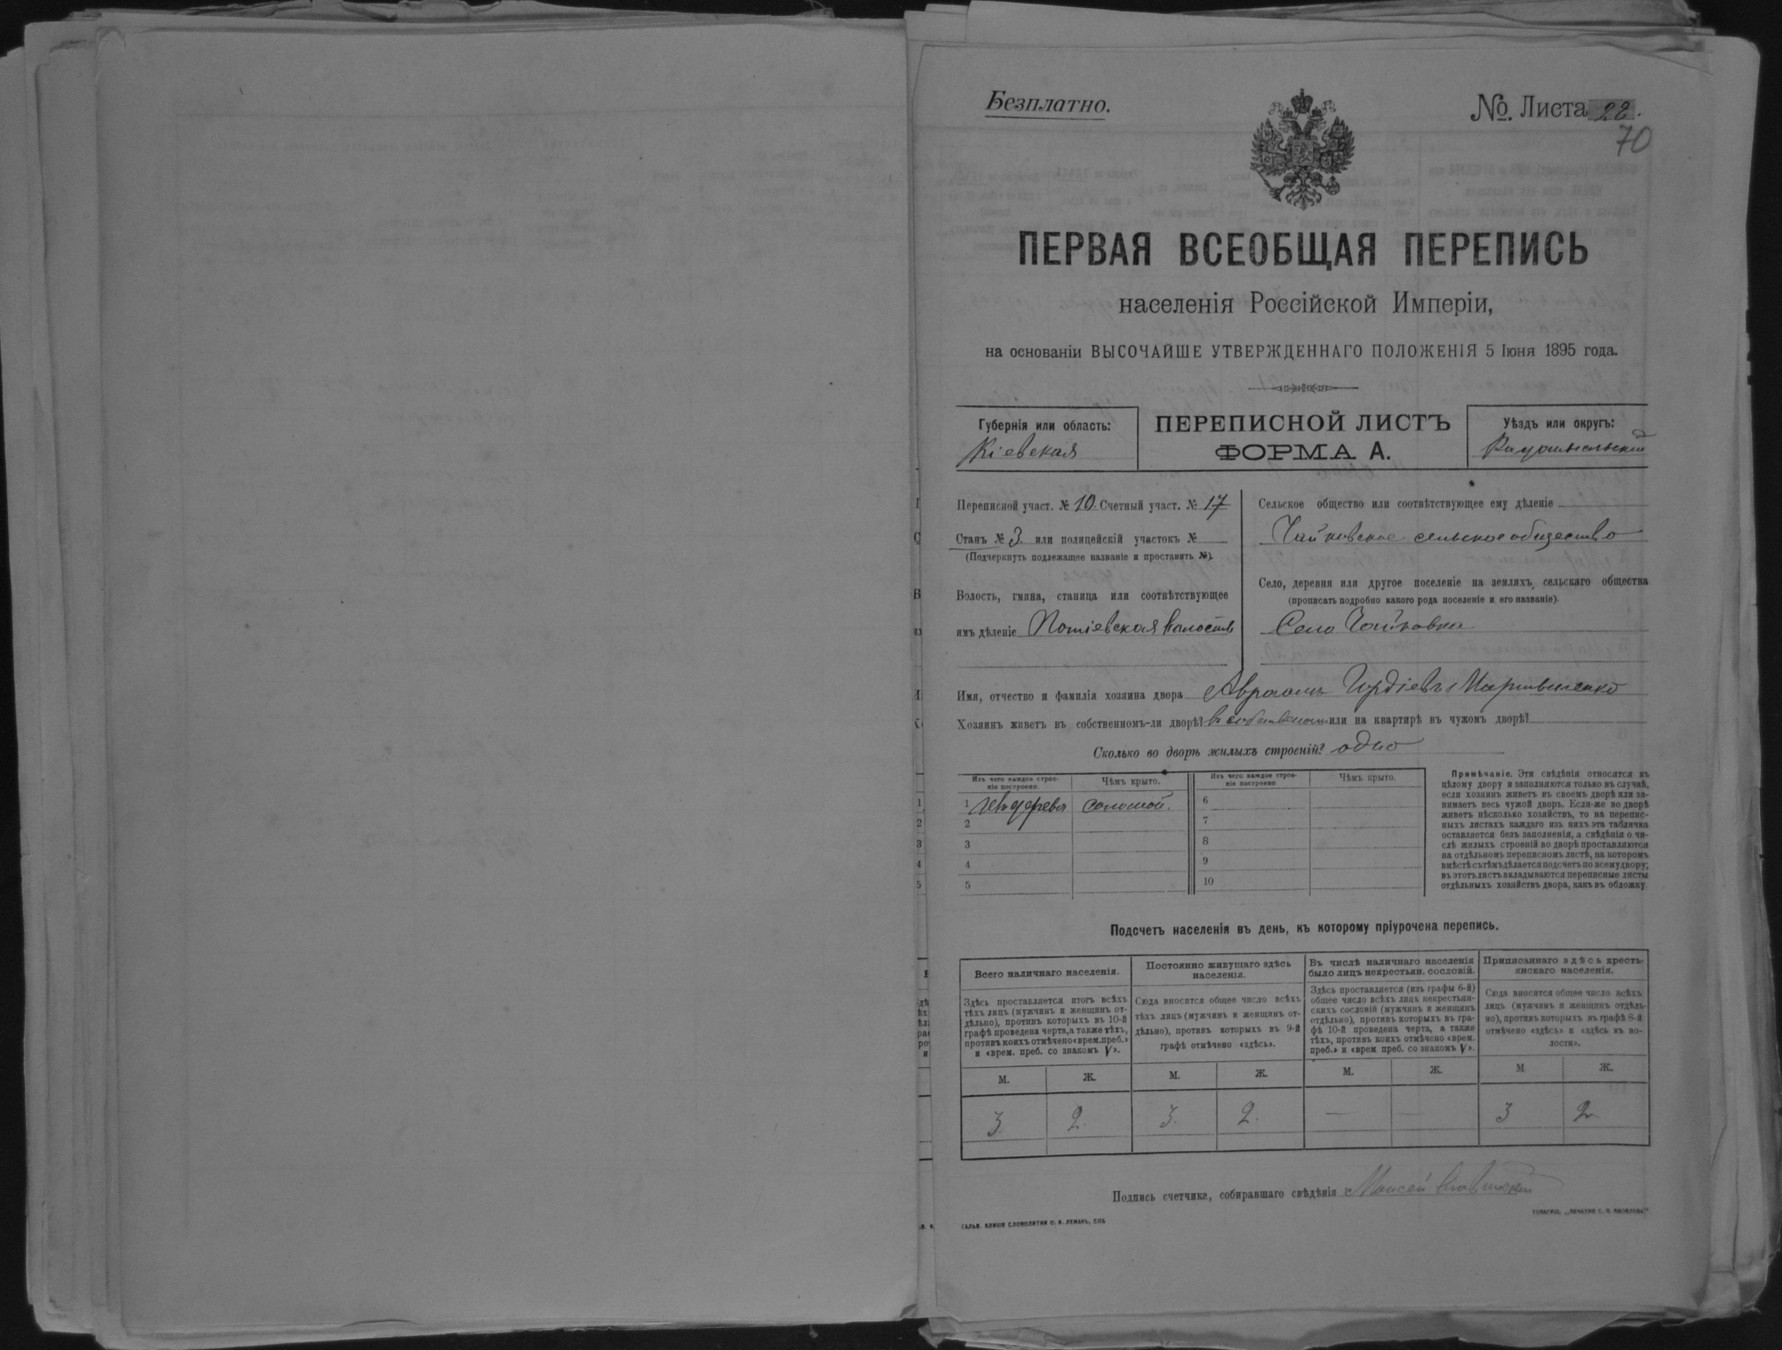 Безплатно.
№ Листа 22.
70
ПЕРВАЯ ВСЕОБЩАЯ ПЕРЕПИСЬ
населенія Россійской Имперіи,
на основаніи ВЫСОЧАЙШЕ УТВЕРЖДЕННАГО ПОЛОЖЕНІЯ 5 Іюня 1895 года.
Губернія или область:
Кіевская
ПЕРЕПИСНОЙ ЛИСТЪ
ФОРМА А.
Уѣздъ или округъ:
Радомысльскій
Переписной участ. № 10 Счетный участ. № 17
Станъ № 3 или полицейскій участокъ №
(Подчеркнуть подлежащее названіе и проставить №).
Волость, гмина, станица или соотвѣтствующее
имъ дѣленіе Потіевская волость
Сельское общество или соотвѣтствующее ему дѣленіе
Чайковское сельское общество
Село, деревня или другое поселеніе на земляхъ сельскаго общества
(прописать подробно какого рода поселеніе и его названіе).
Село Чайковка
Имя, отчество и фамилія хозяина двора Авраамъ
Хозяинъ живетъ въ собственномъ-ли дворѣ? въ собственномъ или на квартирѣ въ чужомъ дворѣ?
Сколько во дворѣ жилыхъ строеній? одно
Изъ чего каждое строе-
ніе построено.
Чѣмъ крыто.
Изъ чего каждое строе-
ніе построено.
Чѣмъ крыто.
1 Изъ дерева соломой.
2
3
4
5
6
7
8
9
10
Примѣчаніе. Эти свѣдѣнія относятся къ
цѣлому двору и заполняются только въ случаѣ,
если хозяинъ живетъ въ своемъ дворѣ или за-
нимаетъ весь чужой дворъ. Если-же во дворѣ
живетъ нѣсколько хозяйствъ, то на перепис-
ныхъ листахъ каждаго изъ нихъ эта табличка
оставляется безъ заполненія, а свѣдѣнія о чи-
слѣ жилыхъ строеній во дворѣ проставляются
на отдѣльномъ переписномъ листѣ, на которомъ
вмѣстѣ съ тѣмъ дѣлается подсчетъ по всему двору;
въ этотъ листъ вкладываются переписные листы
отдѣльныхъ хозяйствъ двора, какъ въ обложку.
Подсчетъ населенія въ день, къ которому пріурочена перепись.
Всего наличнаго населенія.
Здѣсь проставляется итогъ всѣхъ
тѣхъ лицъ (мужчинъ и женщинъ от-
дѣльно), противъ которыхъ въ 10-й
графѣ проведена черта, а также тѣхъ,
противъ коихъ отмѣчено «врем. преб.»
и «врем. преб. со знакомъ V».
Постоянно живущаго здѣсь
населенія.
Сюда вносится общее число всѣхъ
тѣхъ лицъ (мужчинъ и женщинъ от-
дѣльно), противъ которыхъ въ 9-й
графѣ отмѣчено «здѣсь».
Въ числѣ наличнаго населенія
было лицъ некрестьян. сословій.
Здѣсь проставляется (изъ графы 6-й)
общее число всѣхъ лицъ некрестьян-
скихъ сословій (мужчинъ и женщинъ
отдѣльно), противъ которыхъ въ гра-
фѣ 10-й проведена черта, а также
тѣхъ, противъ коихъ отмѣчено «врем.
преб.» и «врем. преб. со знакомъ V».
Приписаннаго здѣсь кресть-
янскаго населенія.
Сюда вносится общее число всѣхъ
лицъ (мужчинъ и женщинъ отдѣль-
но), противъ которыхъ въ графѣ 8-й
отмѣчено «здѣсь» и «здѣсь въ во-
лости».
М. Ж. М. Ж. М. Ж. М Ж.
3 2. 3. 2. — — 3 2
Подпись счетчика, собиравшаго свѣдѣнія Моисей